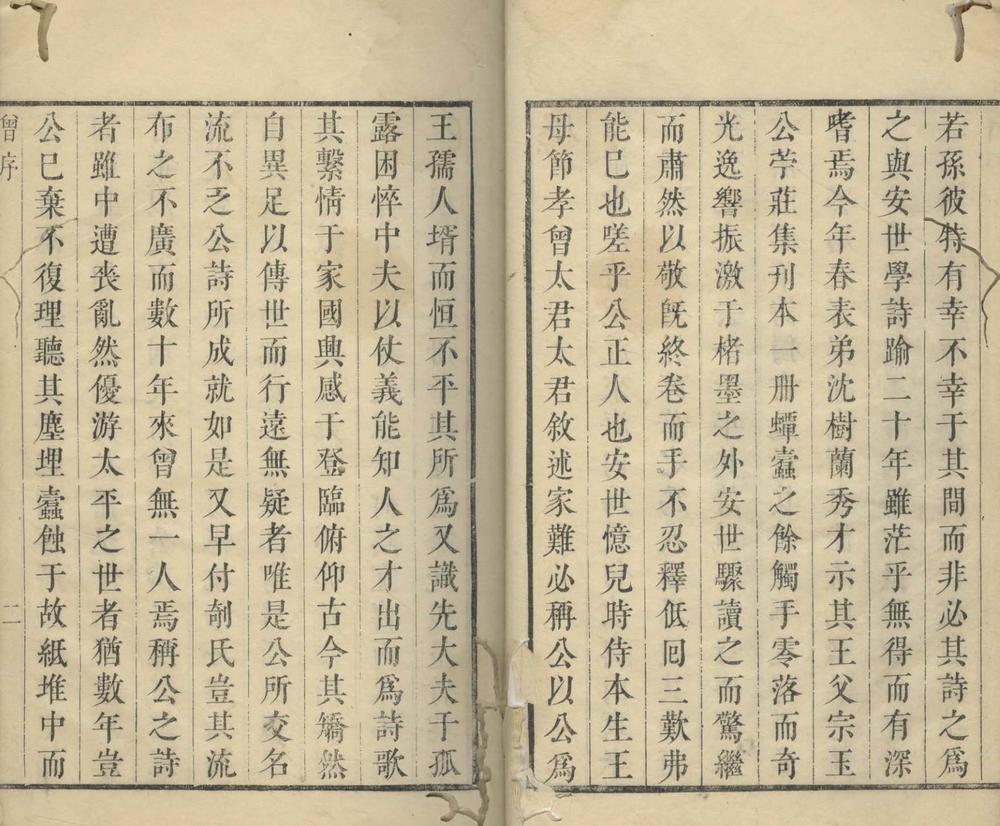 若孫彼特有幸不幸于其間而非必其詩之爲
之與安世學詩踰二十年雖茫乎無得而有深
嗜焉今年春表弟沈樹蘭秀才示其王父宗玉
公苧莊集刊本一冊蟫蠹之餘觸手零落而奇
光逸響振激于楮墨之外安世驟讀之而驚繼
而肅然以敬旣終卷而手不忍釋低回三歎弗
能已也嗟乎公正人也安世憶兒時侍本生王
母節孝曾太君太君敘述家難必稱公以公爲
王孺人壻而恒不平其所爲又識先大夫于孤
露困悴中夫以仗義能知人之才出而爲詩歌
其繫情于家國興感于登臨俯仰古今其矯然
自異足以傳世而行遠無疑者唯是公所交名
流不乏公詩所成就如是又早付剞氏豈其流
布之不廣而數十年來曾無一人焉稱公之詩
者雖中遭喪亂然優游太平之世者猶數年豈
公已棄不復理聽其塵埋蠹蝕于故紙堆中而
曾序
二